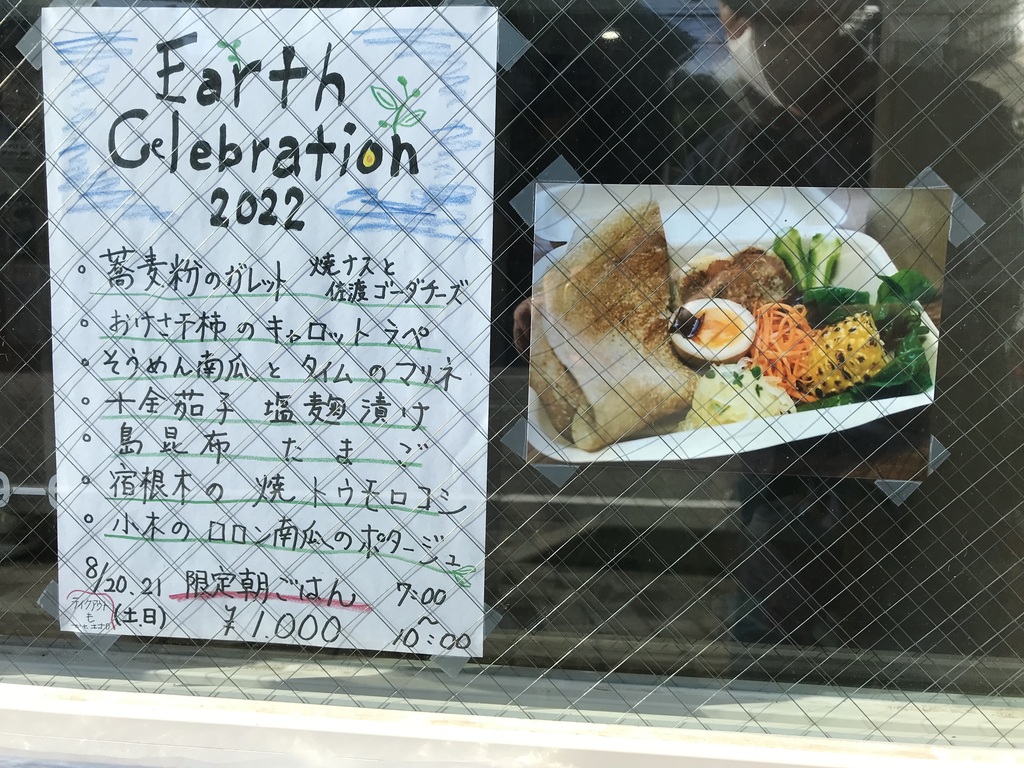 Earth
Celebration
2022
。蕎麦粉のガレット 焼ナスと
佐渡ゴーダチーズ
。おけさ干柿のキャロットラペ
。そうめん南瓜とタイムのマリネ
。十全茄子 塩麹漬け
。島昆布 たまご
。宿根木の焼トウモロコシ
。小木のロロン南瓜のポタージュ
8/20.21 限定朝ごはん 7:00
(土日) ¥1.000 ~
10:00
テイクアウト
も